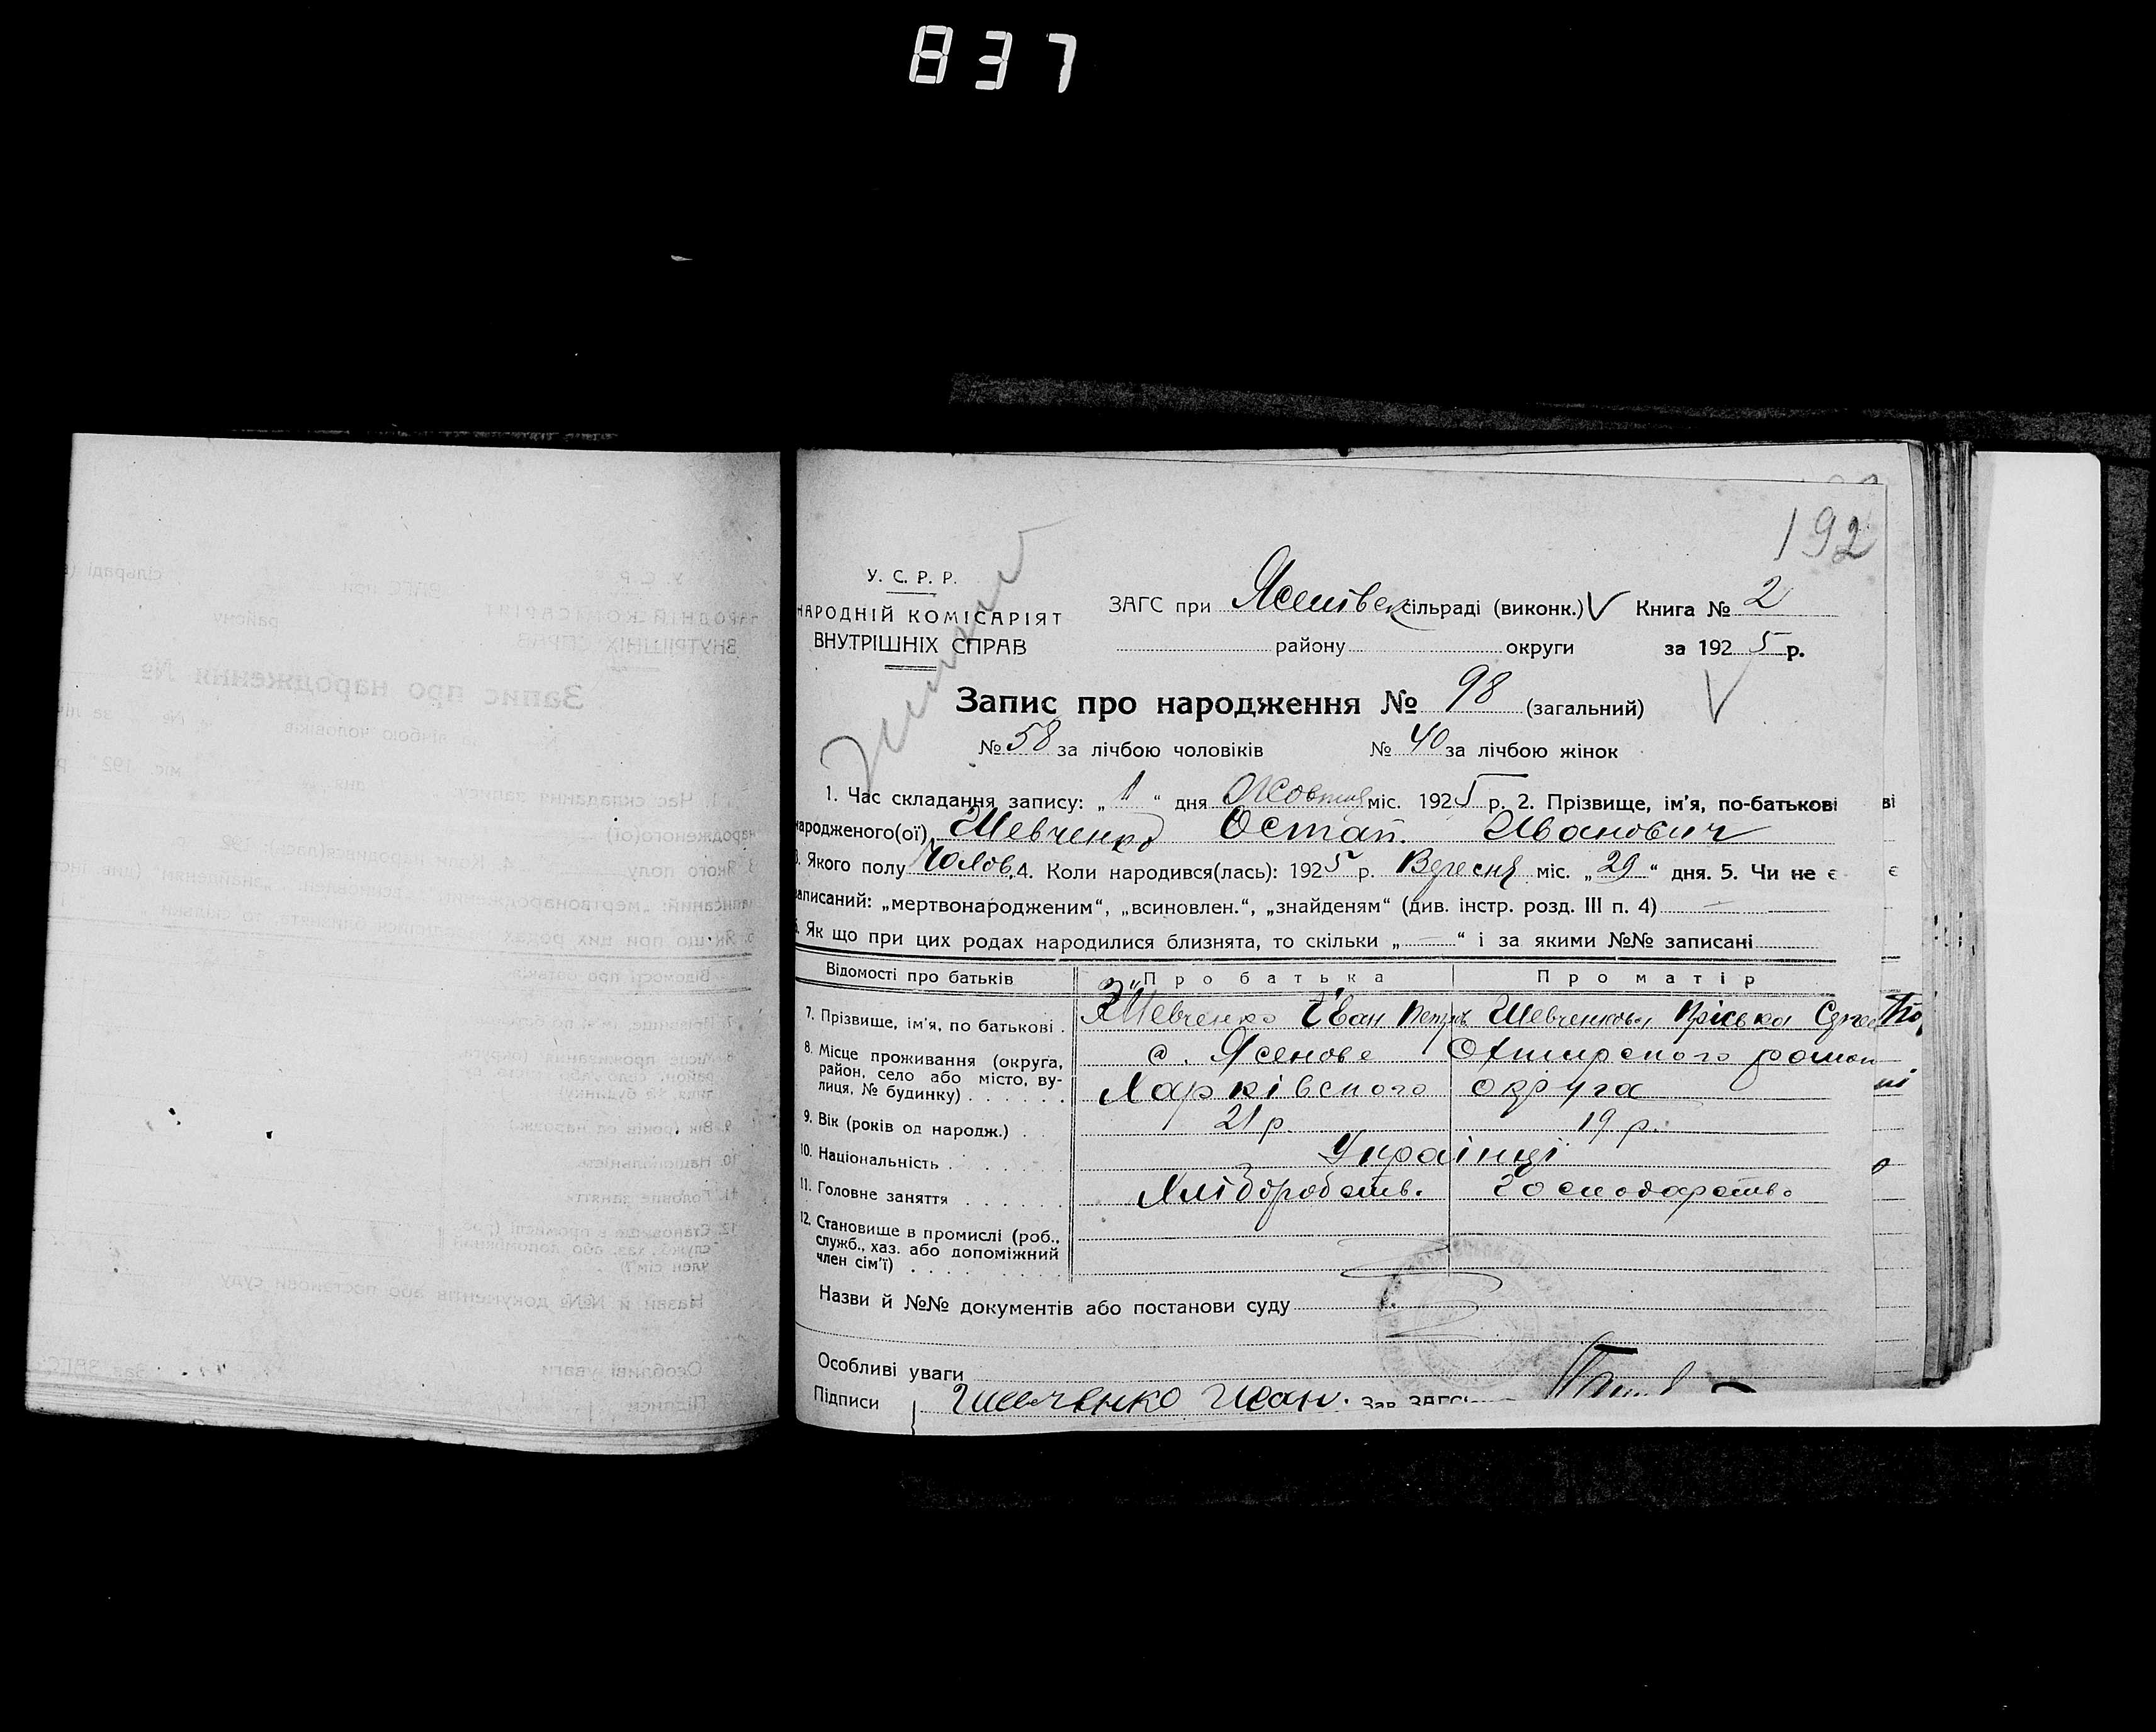 837
192
У. С. Р. Р.
НАРОДНІЙ КОМІСАРІЯТ
ВНУТРІШНІХ СПРАВ
ЗАГС при сільраді (виконк.) V Книга № 2
району округи за 1925 р.
Запис про народження № 98 (загальний) V
№ 58 за лічбою чоловіків № 40 за лічбою жінок
1. Час складання запису: „1“ дня Жовтня міс. 1925 р. 2. Прізвище, ім'я, по-батькові
народженого(ої) Шевченко Остап. Иванович
3. Якого полу Чолов. 4. Коли народився(лась): 1925 р. Вересня міс. „29“ дня. 5. Чи не є
записаний: „мертвонародженим“, „всиновлен.“, „знайденям“ (див. інстр. розд. III п. 4) —
6. Як що при цих родах народилися близнята, то скільки „—“ і за якими №№ записані
Відомості про батьків Про батька Про матір
7. Прізвище, ім'я, по батькові . Шевченко Іван Петров Шевченкова Пріська
8. Місце проживання (округа, район, село або місто, вулиця, № будинку) . . . . . .
с. Ясенове Охтирского
Харківского округа
9. Вік (років од народж.) . . 21 р. 19 р.
10. Національність . . . . . . Українці
11. Головне заняття . . . . . . Хліборобств. Господарство
12. Становище в промислі (роб.,
служб., хаз. або допоміжний
член сім'ї) . . . . . . . . .
Назви й №№ документів або постанови суду
Особливі уваги
Підписи Шевченко Иван. Зав. ЗАГС